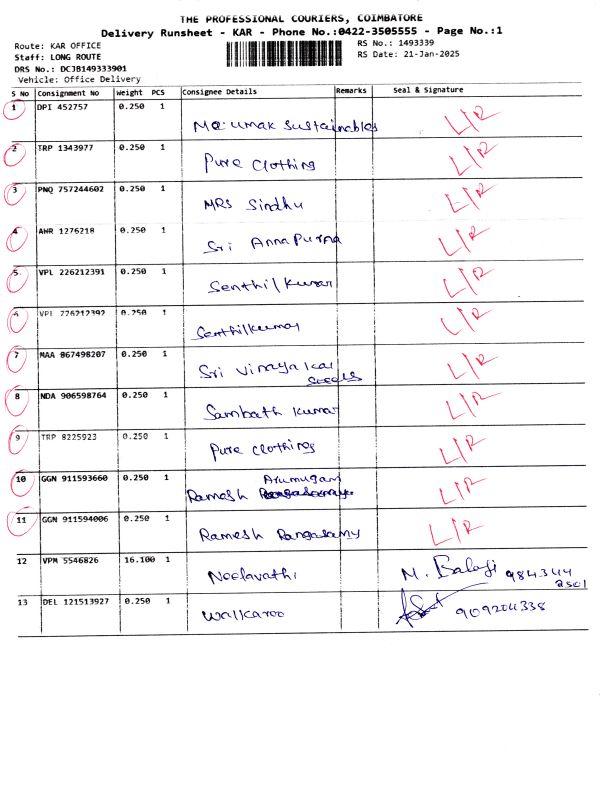 THE PROFESSIONAL COURIERS, COIMBATORE
Delivery Runsheet - KAR - Phone No.:0422-3505555 - Page No.:1
Route: KAR OFFICE RS No.: 1493339
Staff: LONG ROUTE RS Date: 21-Jan-2025
DRS No.: DCJB149333901
Vehicle: Office Delivery
S No Consignment No Weight PCS Consignee Details Remarks Seal & Signature
1 DPI 452757 0.250 1
umak sustainables L/R
2 TRP 1343977 0.250 1
Pure Clothing L/R
3 PNQ 757244602 0.250 1
MRS Sindhu L/R
4 AHR 1276218 0.250 1
Sri AnnaPurna L/R
5 VPL 226212391 0.250 1
Senthil Kumar L/R
6 VPL 226212392 0.250 1
Senthilkumar L/R
7 MAA 867498207 0.250 1
Sri Vinayaka L/R
Seeds
8 NDA 906598764 0.250 1
Sambath Kumar L/R
9 TRP 8225923 0.250 1
Pure Clothings L/R
10 GGN 911593660 0.250 1 Arumugam
Ramesh L/R
11 GGN 911594006 0.250 1
Ramesh Rangasamy L/R
12 VPM 5546826 16.100 1
Neelavathi M. Balaji 984344
2501
13 DEL 121513927 0.250 1
Walkaroo 909204338